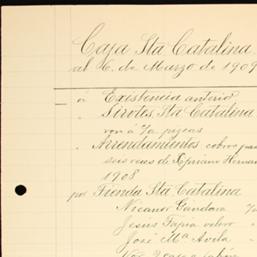 Caja Sta Catalina
al 6. de Marzo de 1909
á Existencia anterio
" Sirotes, Sta Catalina
á %
" Arrendamientos cobro
seis de Cipriano Hernan
1908
por Tienda Sta Catalina
Nicanor Gandara
Jesus Tapia valor
José Ma Avila